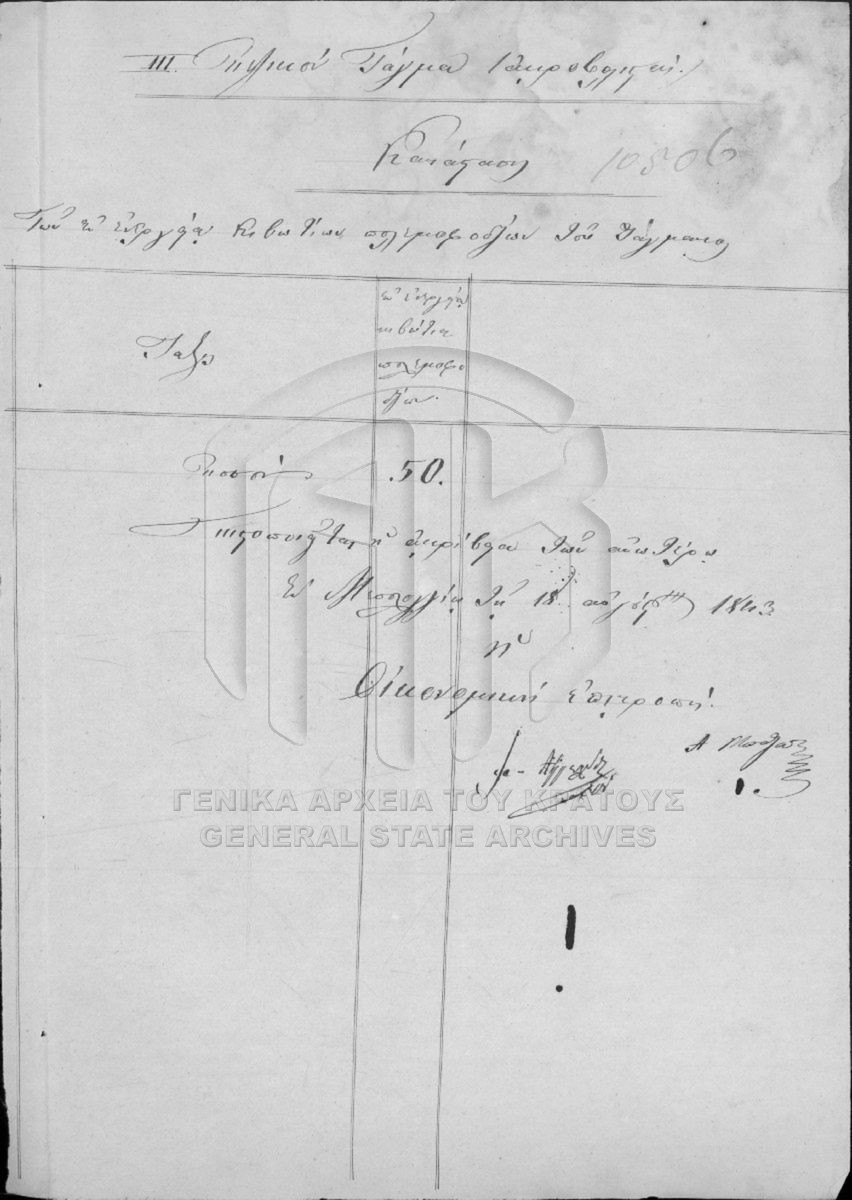 III. Πεζικόν Τάγμα (ἀκροβολισταί.)
Κατάστασις 10506
Τῶν ἐν ἐνεργείᾳ κιβωτίων πολεμοφοδίων τοῦ Τάγματος
Τάξις
ἐν ἐνεργείᾳ
κιβώτια
πολεμοφο
δίων.
Ποσόν .50.
Πιστοποιεῖται ἡ ἀκρίβεια τῶν ἀνωτέρω
Ἐν Μεσολογγίῳ τῇ 18 αὐγούστου 1843
Ἡ
Οἰκονομική ἐπιτροπή.
Α
ΓΕΝΙΚΑ ΑΡΧΕΙΑ ΤΟΥ ΚΡΑΤΟΥΣ
GENERAL STATE ARCHIVES